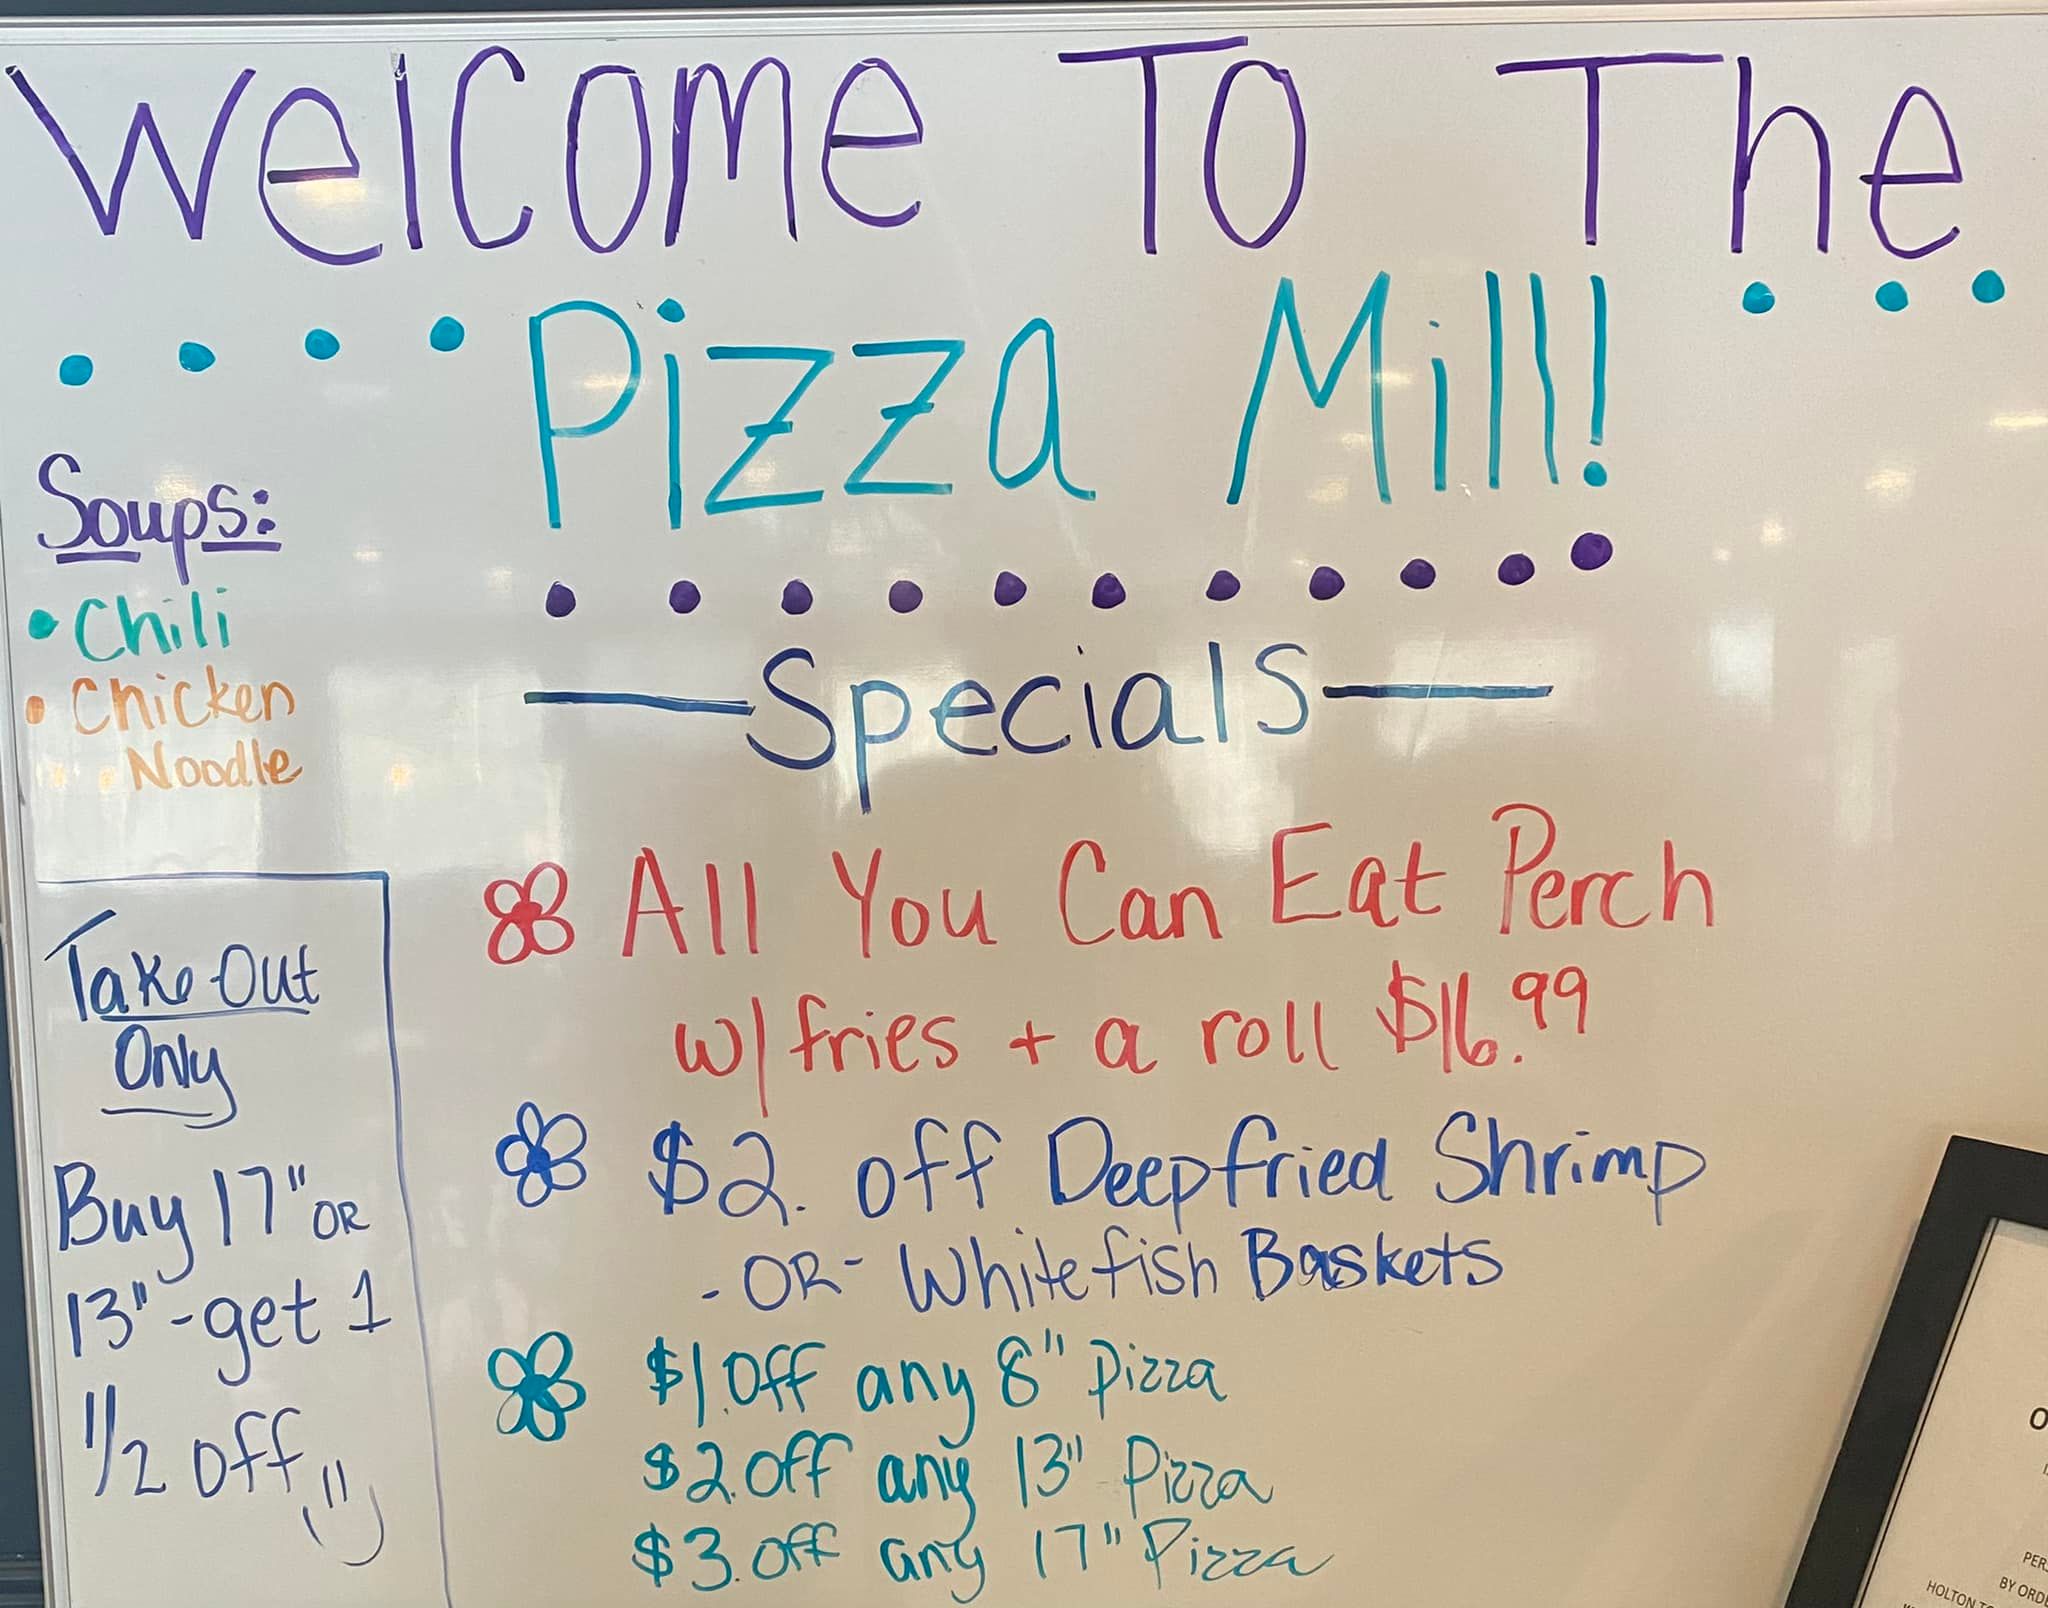 Welcome To The
Pizza Mill!
Soups:
• Chili
• Chicken
Noodle
—Specials—
All You Can Eat Perch
w/ fries + a roll $16.99
$2. off Deepfried Shrimp
- OR - Whitefish Baskets
$1. Off any 8" Pizza
$2. off any 13" Pizza
$3. off any 17" Pizza
Take Out
Only
Buy 17" OR
13" - get 1
1/2 off
PER
BY ORDE
HOLTON TO